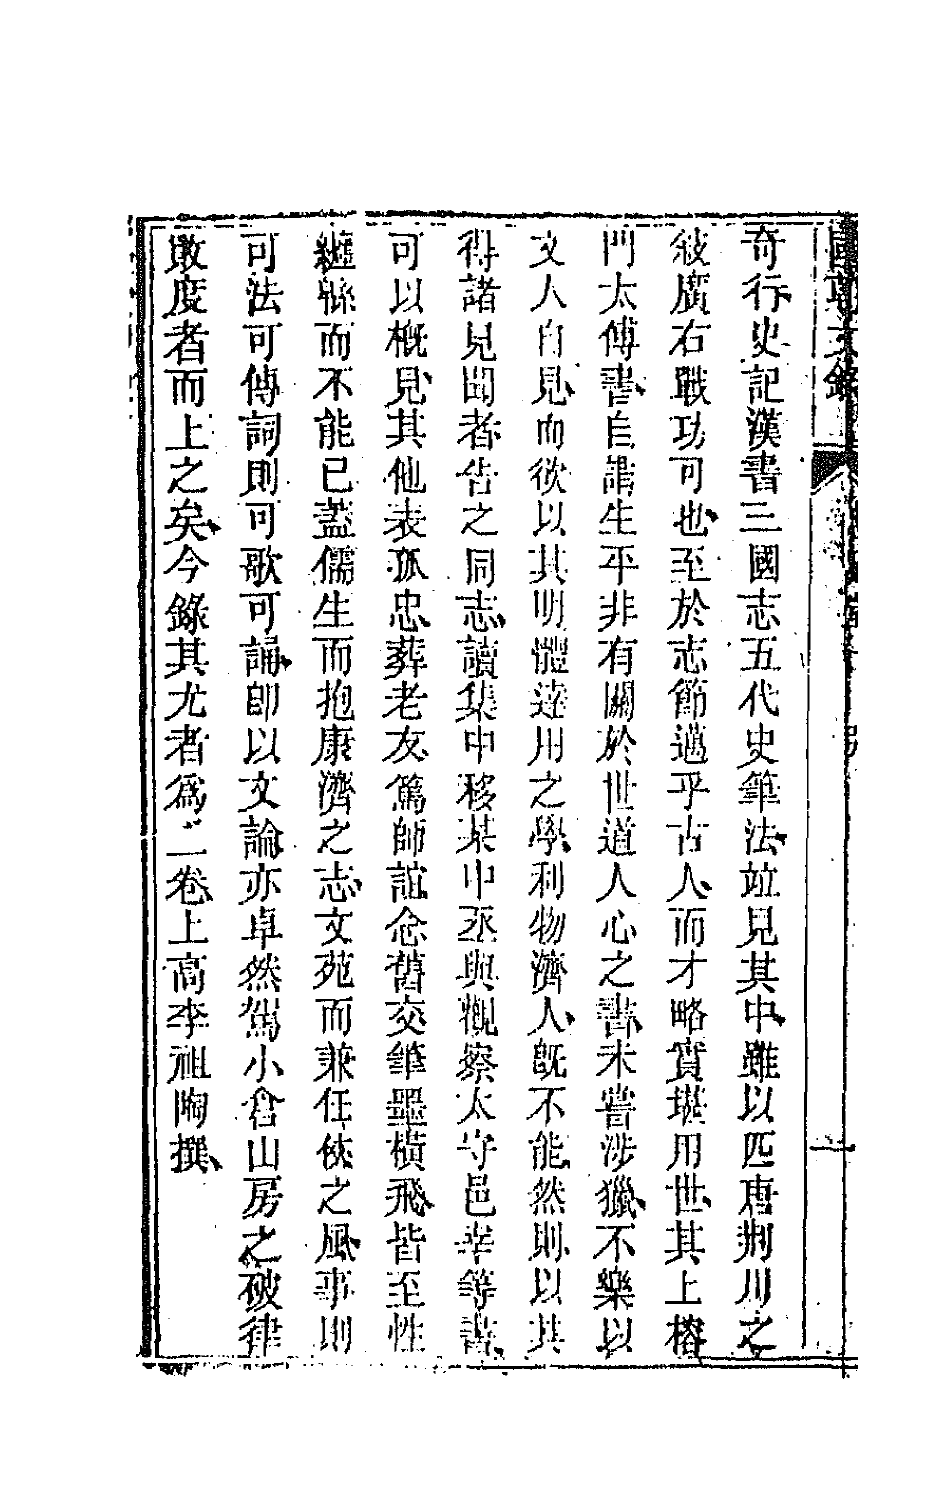 國朝文錄
奇行史記漢書三國志五代史筆法竝見其中雖以匹唐荆川之
敍廣右戰功可也至於志節邁乎古人而才略實堪用世其上榕
門太傅書自謂生平非有關於世道人心之書未嘗涉獵不樂以
文人自見而欲以其明體達用之學利物濟人既不能然則以其
得諸見聞者告之同志讀集中移某中丞與觀察太守邑宰等書
可以槪見其他表孤忠葬老友篤師誼念舊交筆墨橫飛皆至性
纏緜而不能已蓋儒生而抱康濟之志文苑而兼任俠之風事則
可法可傳詞則可歌可誦卽以文論亦卓然駕小倉山房之破律
敗度者而上之矣今錄其尤者爲二卷上高李祖陶撰